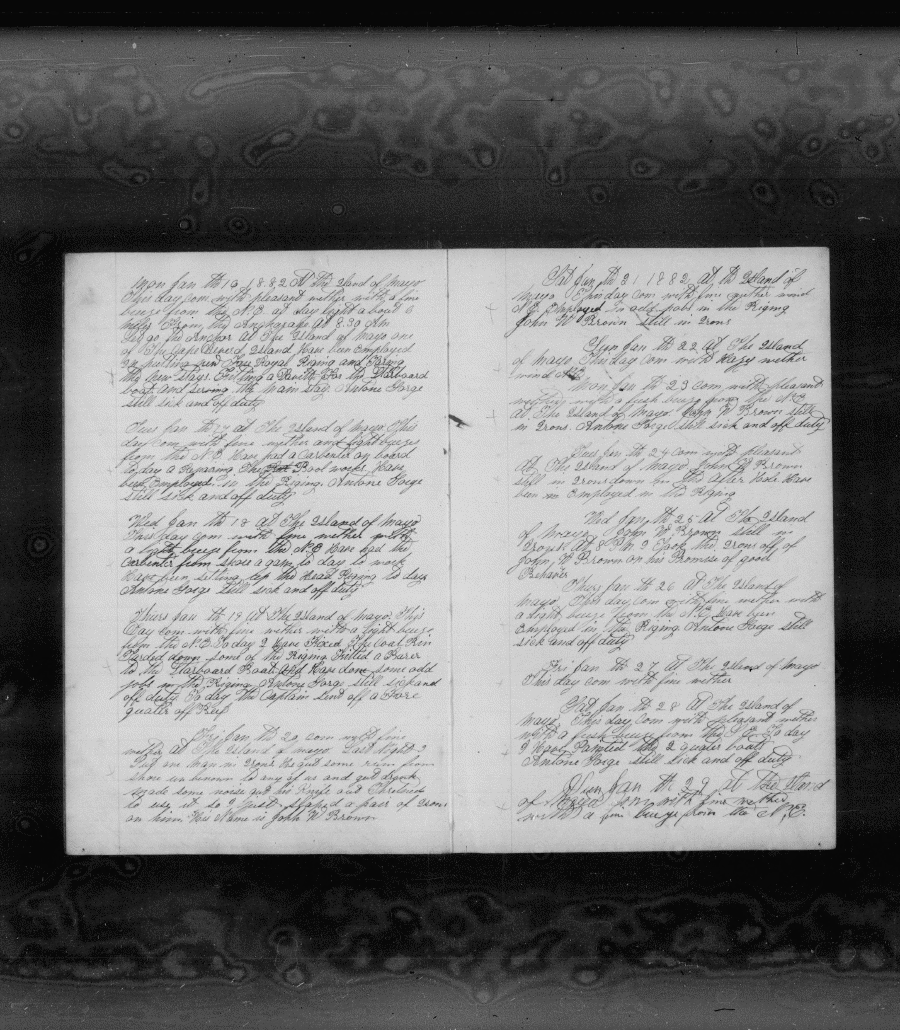 Mon Jan th 16 1882 At the Island of Mayo
This day com with pleasant wether with a fine
breeze from the N.E. at day light a boat
from the Anchorage At 8.30 Am
Let go the Anchor At The Island of Mayo one
of The Cape Deverd Island Have been Employed
Royal Riging and
the New Stays For the Starboard
boat and the Main Stay Antone Jorge
Still sick and off duty
Tues Jan th 17 at The Island of Mayo This
day com with fine wether and light breeze
from the N.E. Have had a Carpenter on board
to day a Reparing The Boat works Have
been Employed in the Riging. Antone Jorge
still sick and off duty
Wed Jan th 18 At The Island of Mayo
This day com with fine wether with
a light breeze from the N.E. Have had the
Carpenter from shore a gain to day to work
Have been setting up the Head Riging to day
Antone Jorge still sick and off duty
Thurs Jan th 19 At The Island of Mayo This
Day com with fine wether with a light breeze
from the N.E. To day I Have Fixed The Coal
Tarded down some of the Riging Fitted a
to the Starboard Boat And Have done some odd
jobs in the Riging. Antone Jorge still sick and
off duty To day The Captain send off a Fore
quater off Beef
Fri Jan th 20 com with fine
wether At The Island of mayo Last Night I
Put one Man in Irons He got some rum from
shore un benown to any of us and got drunk
made some noise got his Knife and
to use it so I just a pair of Irons
on him His Name is John W Brown
Sat Jan th 21 1882 At th Island of
Mayo This day com with fine wether wind
N.E. Employed in odd jobs in the Riging
John W Brown still in Irons
Sun Jan th 22 At The Island
of mayo This day com with Hazy wether
wind N.E.
Mon Jan th 23 com with pleasant
wether with a fresh breeze from the N.E.
At The Island of Mayo. John W Brown still
in Irons. Antone Jorge still sick and off duty
Tues Jan th 24 com with pleasant
At The Island of Mayo John W Brown
still in Irons down in the After Hole Have
been in Employed in the Riging
Wed Jan th 25 At The Island
of Mayo. John W Brown still in
Irons At 8 P.M I Took the Irons off of
John W Brown on his Promise of good
Behaver
Thurs Jan th 26 At The Island of
mayo This day com with fine wether with
a light breeze from the N.E. Have been
Employed in the Riging Antone Jorge still
sick and off duty
Fri Jan th 27 At The Island of Mayo
This day com with fine wether
Sat Jan th 28 At The Island of
Mayo This day com with pleasant wether
with a fresh breeze from the N.E. To day
I Have Painted the 2 quater boats
Antone Jorge still sick and off duty
Sun Jan th 29 At The Island
of Mayo com with fine wether
with a fine breeze from the N.E.